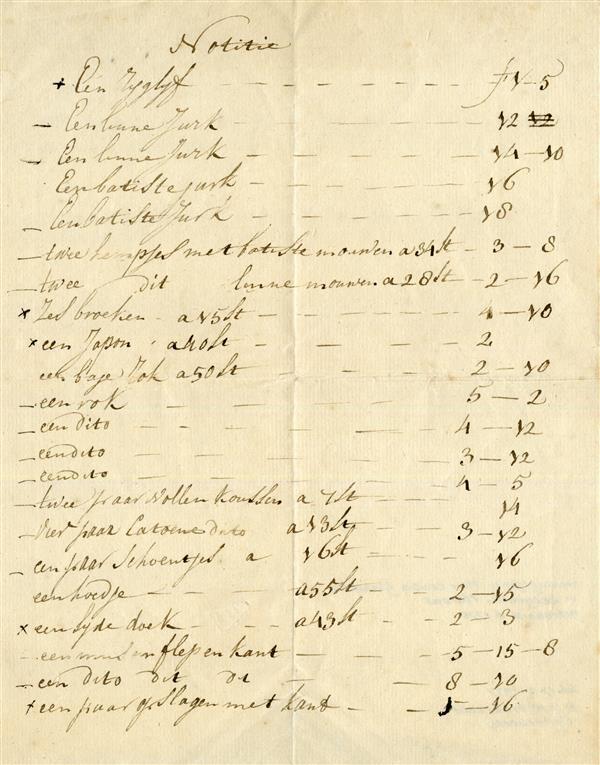 Notitie
+ Een ryglyf — — — — ƒ 1 — 5
— Een linne Jurk — — — — 12 ~~12~~
— Een linne Jurk — — — — 14 — 10
Een batiste jurk — — — — 16
— Een batiste Jurk — — — — 18
— twee hempjes met batiste mouwen a 34 st — 3 — 8
— twee dit linne mouwen a 28 st — 2 — 16
× Zes broeken - a 15 st — — — — 4 — 10
× een Japon - a 40 st — — — — 2
een baye Rok a 50 st — — — 2 — 10
— een rok — — — — 5 — 2
— een dito — — — — 4 — 12
— een dito — — — — 3 — 12
— een dito — — — — 4 — 5
— twee paar wollen koussen a 7 st — — — 14
— vier paar Catoene dito a 13 st — — 3 — 12
— een paar schoentjes a 16 st — — — 16
een hoedje — — — a 55 st — — 2 — 15
× een syde doek — — a 43 st — — 2 — 3
— een en flep en kant — — — 5 — 15 — 8
— een dito dit — — — 8 — 10
× een paar opslagen met kant — — — 16